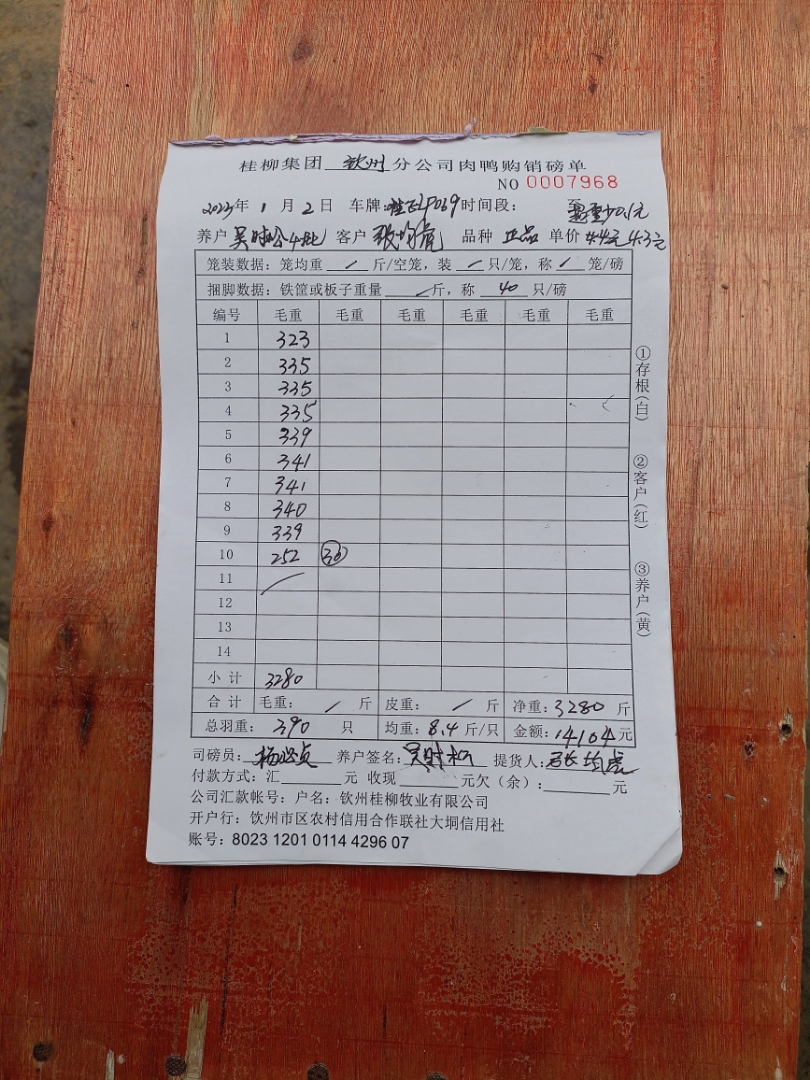 桂柳集团 钦州 分公司肉鸭购销磅单
NO 0007968
2023年 1 月 2 日 车牌: 时间段: 至
养户 吴时松4批 客户 张均虎 品种 正品 单价 4.4元 4.3元
笼装数据：笼均重 / 斤/空笼，装 / 只/笼，称 / 笼/磅
捆脚数据：铁筐或板子重量 / 斤，称 40 只/磅
编号 毛重 毛重 毛重 毛重 毛重 毛重
1 323
2 335
3 335
4 335
5 339
6 341
7 341
8 340
9 339
10 252 30
11 /
12
13
14
小计 3280
合计 毛重： / 斤 皮重： / 斤 净重：3280 斤
总羽重： 390 只 均重：8.4 斤/只 金额：14104元
司磅员： 养户签名： 提货人：张均虎
付款方式：汇 元 收现 元欠（余）： 元
公司汇款帐号：户名：钦州桂柳牧业有限公司
开户行：钦州市区农村信用合作联社大垌信用社
账号：8023 1201 0114 4296 07
①存根(白)
②客户(红)
③养户(黄)